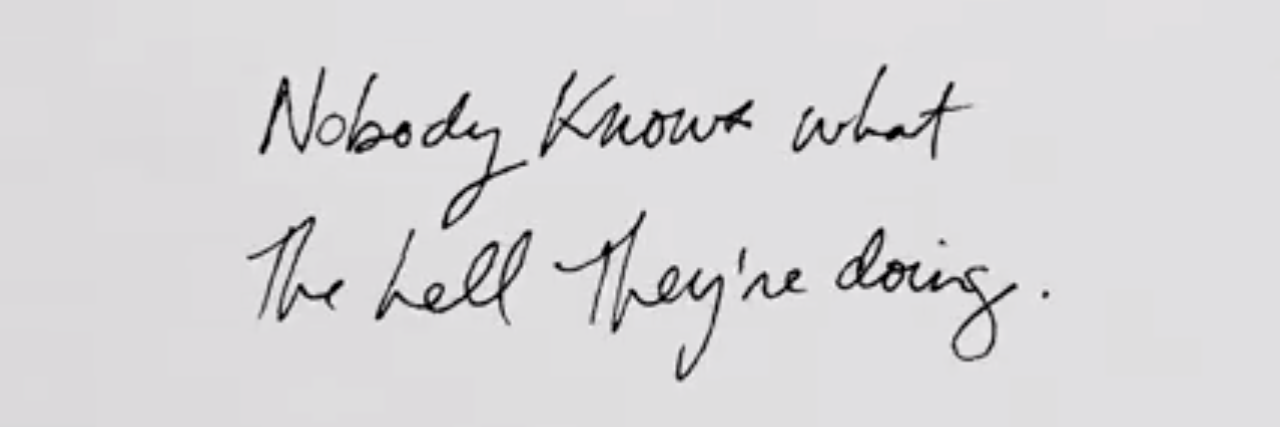 Nobody Knows what
The hell They're doing.